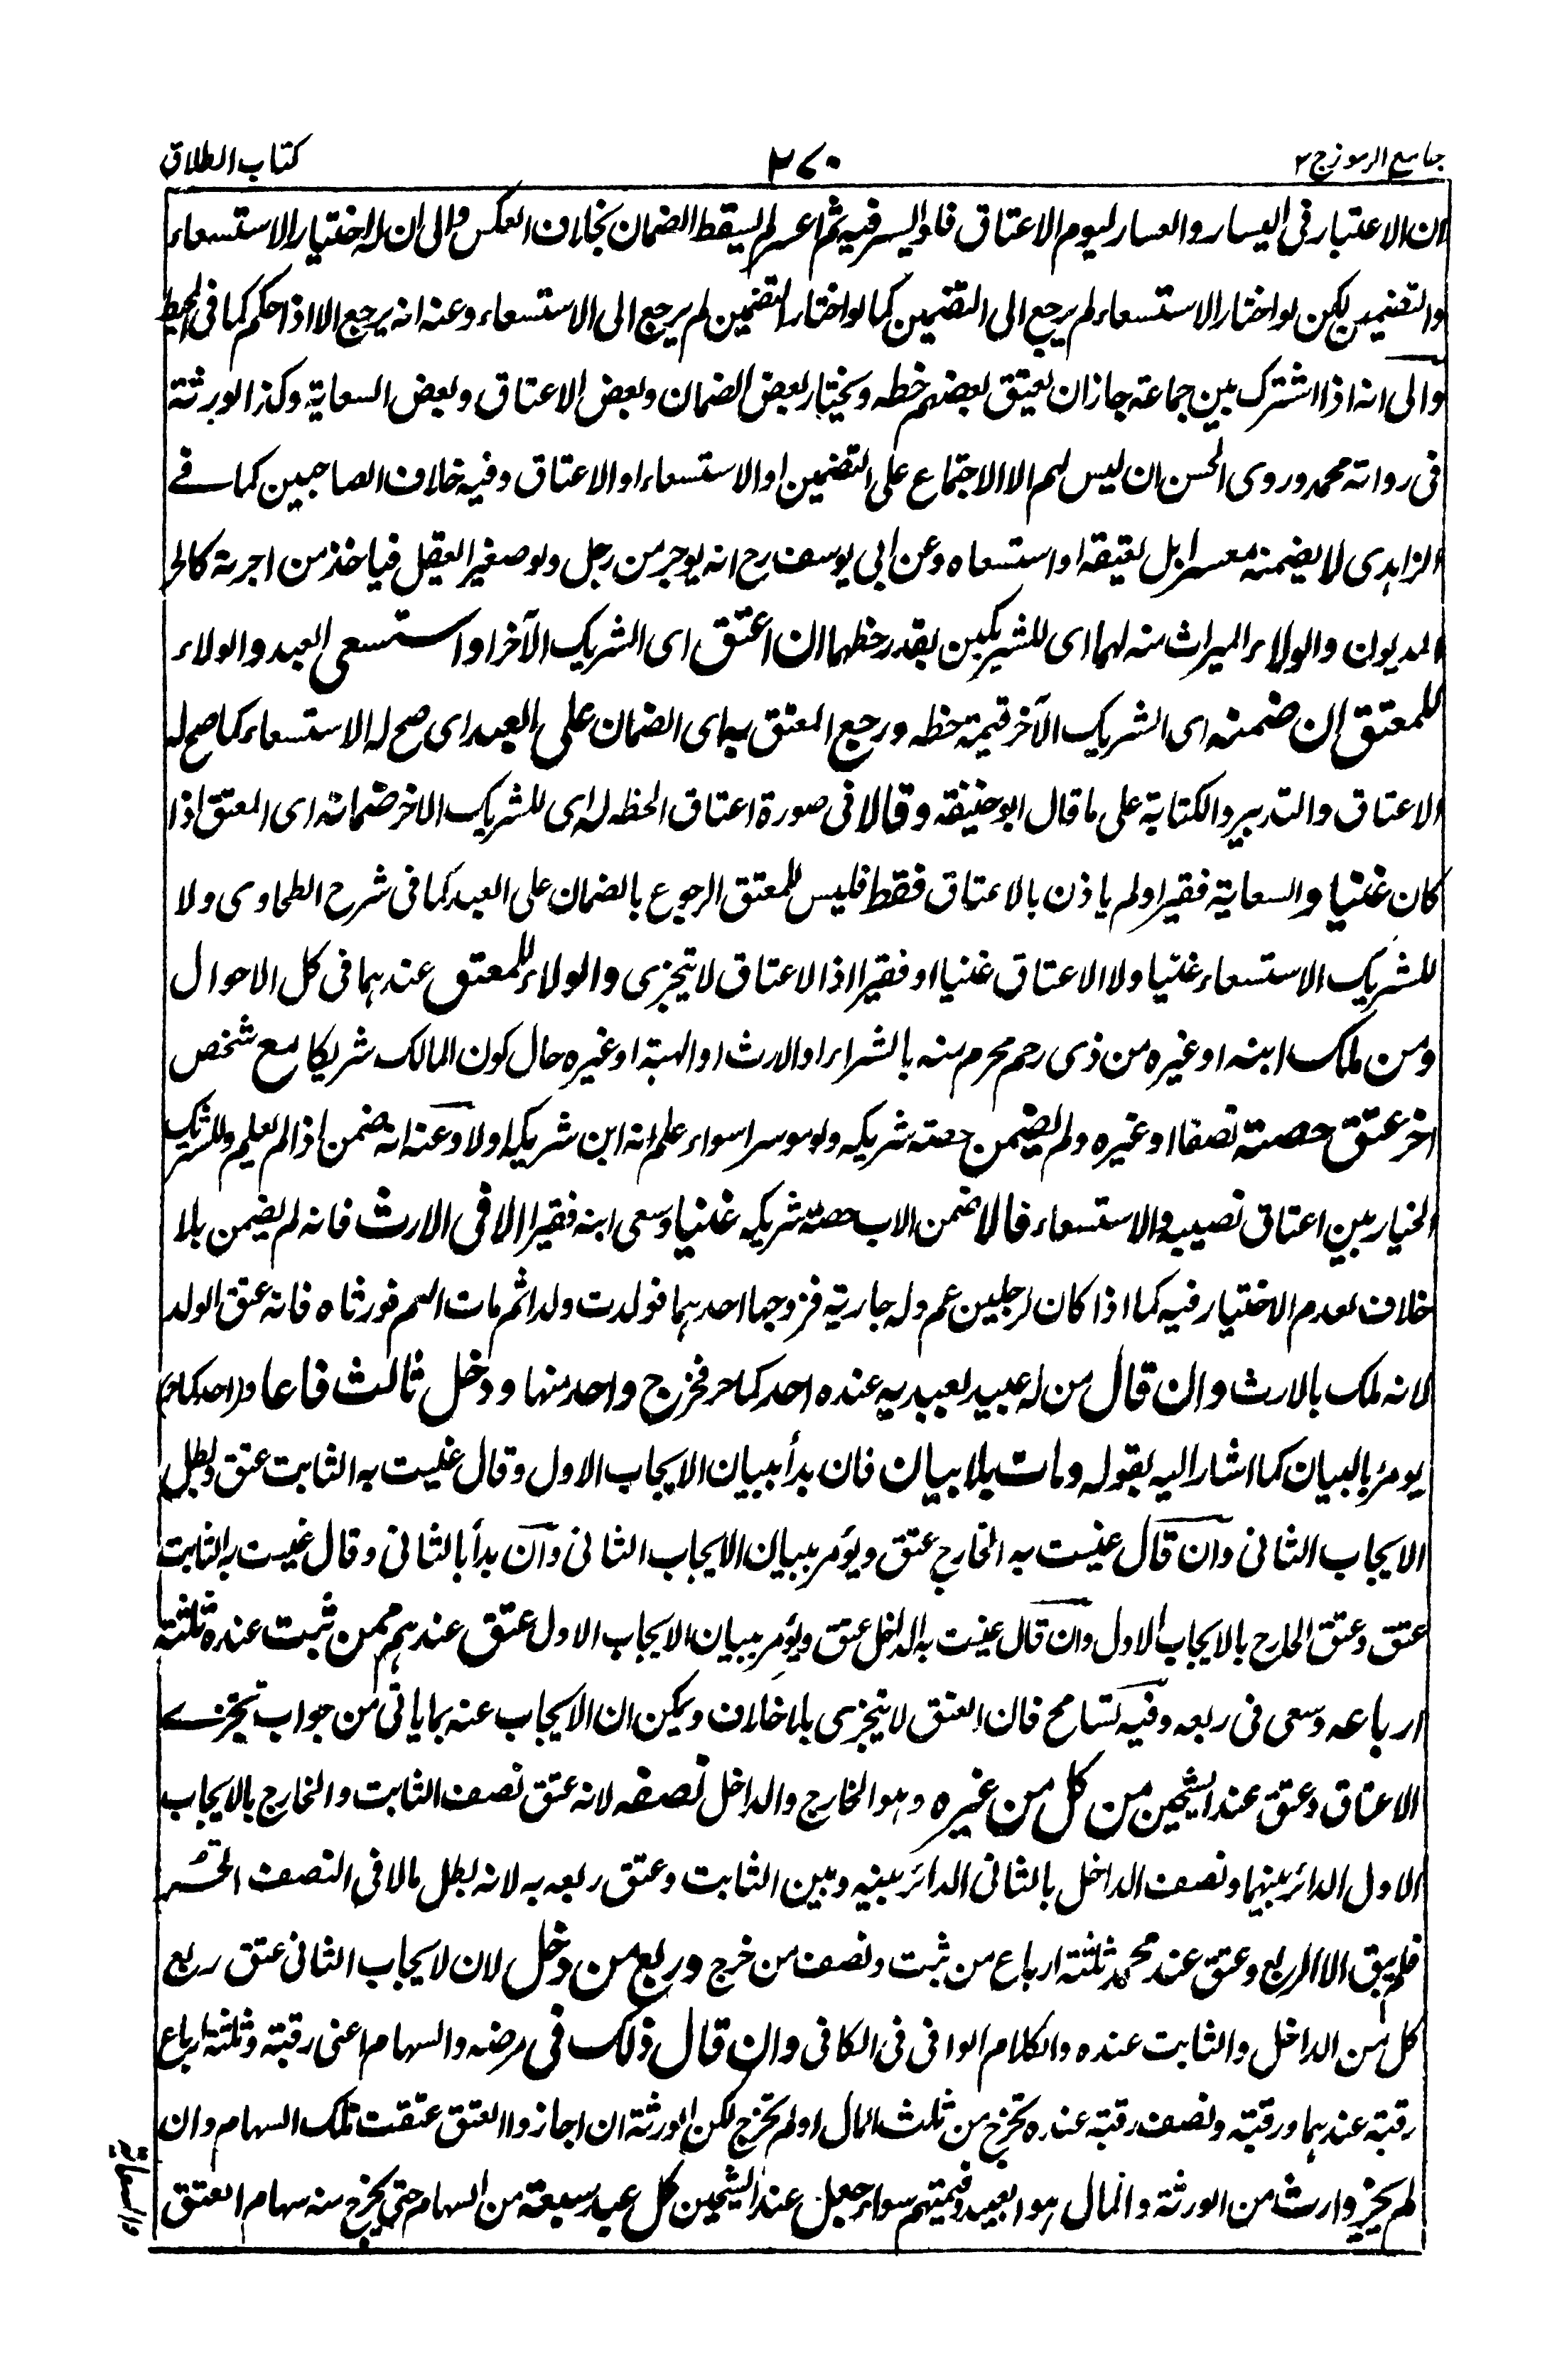 جامع الرموز ج ٢
٢٧٠
كتاب الطلاق
ان الاعتبار فى اليسار والعسار ليوم الاعتاق فلو ايسر فيه ثم اعسر لم يسقط الضمان بخلاف العكس والى ان له اختيار الاستسعاء
والتضمين لكن لو اختار الاستسعاء لم يرجع الى التضمين كما لو اختار التضمين لم يرجع الى الاستسعاء وعنه انه يرجع الا اذا حكم كما فى المحيط
والى انه اذا اشترك بين جماعة جاز ان يعتق بعضهم حظه ويختار بعض الضمان وبعض الاعتاق وبعض السعاية وكذا لورثته
فى رواية محمد وروى الحسن ان ليس لهم الا الاجتماع على التضمين او الاستسعاء او الاعتاق وفيه خلاف الصاحبين كما فے
الزاهدى لا يضمنه معسرا بل يعتقه او استسعاه وعن ابى يوسف رح انه يوجر من رجل ولو صغير العقل فياخذ من اجرته كالحر
المديون والولاء الميراث منه لهما اى للشريكين بقدر حظهما ان اعتق اى الشريك الآخر او استسعى العبد والولاء
للمعتق ان ضمنه اى الشريك الآخر قيمة حظه ورجع المعتق به اى الضمان على العبد اى صح له الاستسعاء كما صح له
الاعتاق والتدبير والكتابة على ما قال ابو حنيفة وقالا فى صورة اعتاق الحظ له اى للشريك الاخر ضمانه اى المعتق اذا
كان غنيا والسعاية فقيرا ولم ياذن بالاعتاق فقط فليس للمعتق الرجوع بالضمان على العبد كما فى شرح الطحاوى ولا
للشريك الاستسعاء غنيا ولا الاعتاق غنيا او فقيرا اذ الاعتاق لا يتجزى والولاء للمعتق عندهما فى كل الاحوال
ومن ملك ابنه او غيره من ذى رحم محرم منه بالشراء او الارث او الهبة او غيره حال كون المالك شريكا مع شخص
اخر عتق حصته نصفا او غيره ولم يضمن حصة شريكه ولو موسرا سواء علم انه ابن شريكه او لا وعنه انه ضمن اذا لم يعلم وللشريك
الخيار بين اعتاق نصيبه والاستسعاء قالا ضمن الاب حصة شريكه غنيا وسعى ابنه فقيرا الا فى الارث فانه لم يضمن بلا
خلاف لعدم الاختيار فيه كما اذا كان لرجلين عم وله جارية فزوجها احدهما فولدت ولدا ثم مات العم فورثاه فانه عتق الولد
لانه ملك بالارث وان قال من له عبيد لعبديه عنده احدكما حر فخرج واحد منهما ودخل ثالث فاعاد (احدكما حر)
يومر بالبيان كما اشار اليه بقوله ومات بلا بيان فان بدأ ببيان الايجاب الاول وقال عنيت به الثابت عتق وبطل
الايجاب الثانى وان قال عنيت به الخارج عتق ويؤمر ببيان الايجاب الثانى وان بدأ بالثانى وقال عنيت به الثابت
عتق وعتق الخارج بالايجاب الاول وان قال عنيت به الداخل عتق ويؤمر ببيان الايجاب الاول عتق عندهم ممن ثبت عنده ثلثة
ارباعه وسعى فى ربعه وفيه تسامح فان العتق لا يتجزى بلا خلاف ويمكن ان الايجاب عنه بما ياتى من جواب تجزے
الاعتاق وعتق عند الشيخين من كل من غيره وهو الخارج والداخل نصفه لانه عتق نصف الثابت والخارج بالايجاب
الاول الدائر بينهما ونصف الداخل بالثانى الدائر بينه وبين الثابت وعتق ربعه به لانه بطل مالا فى النصف الحر
فلم يبق الا الربع وعتق عند محمد ثلثة ارباع من ثبت ونصف من خرج وربع من دخل لان لايجاب الثانى عتق ربع
كل من الداخل والثابت عنده والكلام الوافى فى الكافى وان قال ذلك فى مرضه والسهام اعنى رقبة وثلثة ارباع
رقبة عندهما ورقبة ونصف رقبة عنده تخرج من ثلث المال او لم تخرج لكن الورثة ان اجازوا العتق عتقت تلك السهام وان
لم يجز وارث من الورثة والمال هو العبيد وقيمتهم سواء جعل عند الشيخين كل عبد سبعة من السهام حتى يخرج منه سهام العتق